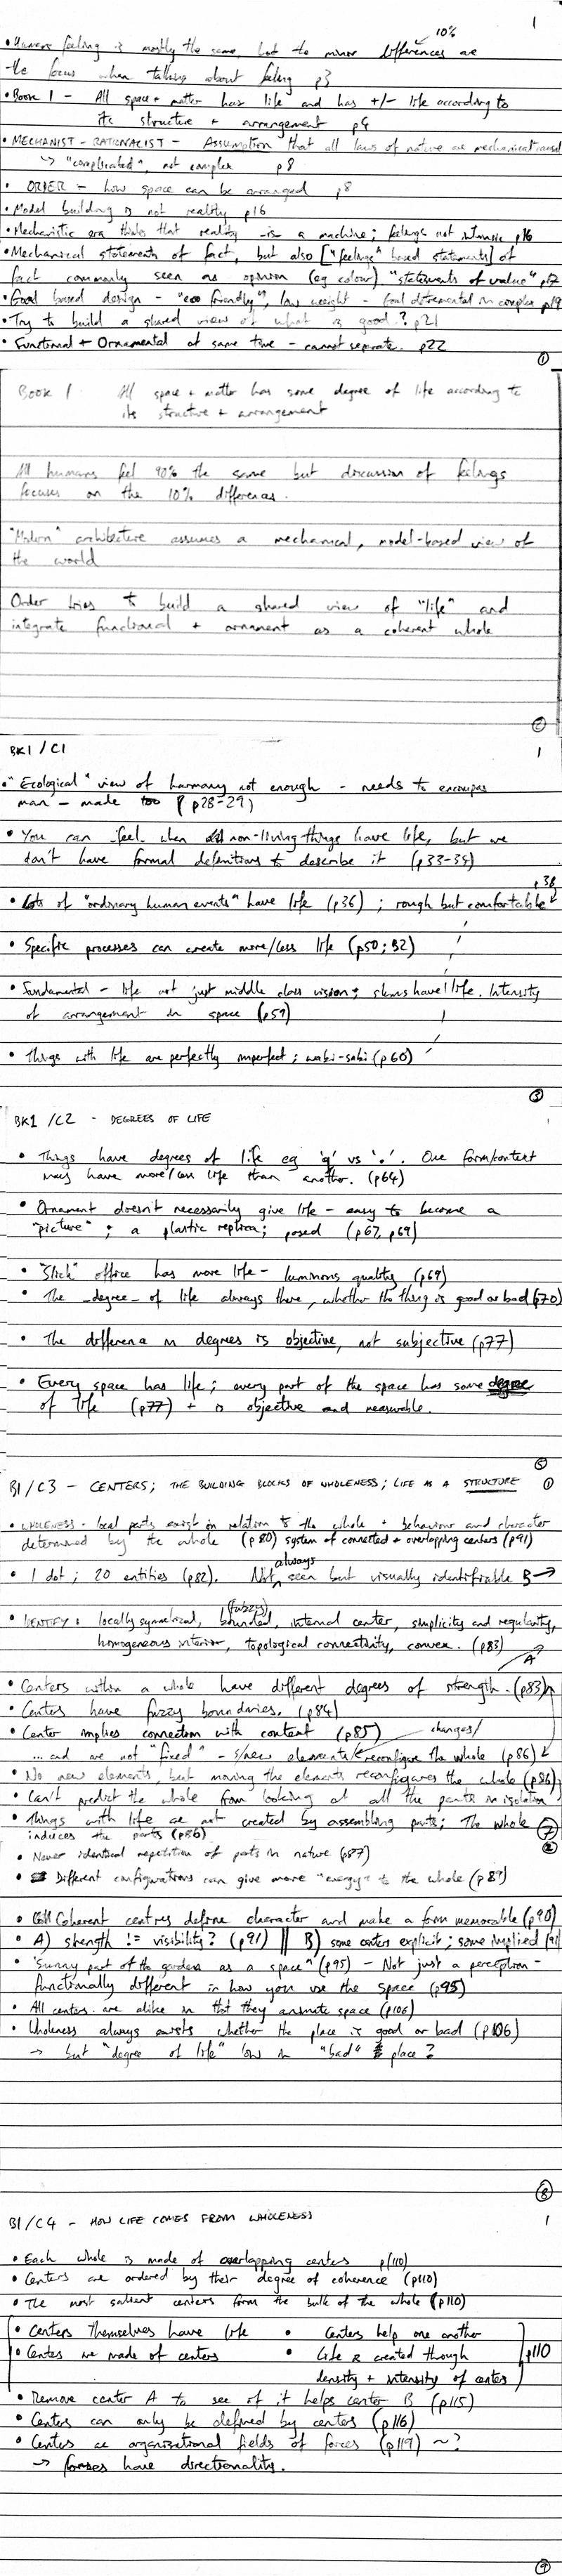 1
10%
• Human feeling is mostly the same, but the minor differences are
the focus when talking about feeling p3
• Book 1 - All space + matter has life and has +/- life according to
its structure + arrangement p4
• MECHANIST - RATIONALIST - Assumption that all laws of nature are mechanical
↳ "complicated", not complex p8
• ORDER - how space can be arranged p8
• Model building is not reality p16
• Mechanistic era thinks that reality is a machine; feelings not intrinsic p16
• Mechanical statements of fact, but also ["feelings" based statements] of
fact commonly seen as opinion (eg colour) "statements of value" p17
• Goal based design - "eco friendly", low weight - Goal detremental in complex p19
• Try to build a shared view of what is good? p21
• Functional + Ornamental at same time - cannot separate. p22
①
Book 1 All space + matter has some degree of life according to
its structure + arrangement
All humans feel 90% the same but discussion of feelings
focuses on the 10% differences.
"Modern" architecture assumes a mechanical, model-based view of
the world
Order tries to build a shared view of "life" and
integrate functional + ornament as a coherent whole
②
BK1 / C1
1
• "Ecological" view of harmony not enough - needs to encompas
man - made too (p28-29)
• You can _feel_ when non-living things have life, but we
don't have formal definitions to describe it (p33-34)
p38
• Lots of "ordinary human events" have life (p36) ; rough but comfortable
• Specific processes can create more/less life (p50; B2)
• Fundamental - life not just middle class vision; slums have life. Intensity
of arrangement in space (p59)
• Things with life are perfectly imperfect ; wabi-sabi (p60)
③
BK1 /C2 - DEGREES OF LIFE
• Things have degrees of life eg 'q' vs '.'. One form/context
may have more/less life than another. (p64)
• Ornament doesn't necessarily give life - easy to become a
"picture" ; a plastic replica; posed (p67, p69)
• "Slick" office has more life - luminous quality (p69)
• The _degree_ of life always there, whether the thing is good or bad (p70)
• The difference in degrees is objective, not subjective (p77)
• Every space has life ; every part of the space has some degree
of life (p77) + is objective and measurable.
⑤
B1/C3 - CENTERS; THE BUILDING BLOCKS OF WHOLENESS; LIFE AS A STRUCTURE ①
• WHOLENESS - local parts exist in relation to the whole + behaviour and character
determined by the whole (p80) system of connected + overlapping centers (p91)
always
• 1 dot ; 20 entities (p82). Not seen but visually identifiable B→
(fuzzy)
• IDENTIFY: locally symmetrical, bounded, internal center, simplicity and regularity,
homogeneous interior, topological connectivity, convex. (p83)
A
• Centers within a whole have different degrees of strength. (p83)
• Centers have fuzzy boundaries. (p84)
• Center implies connection with context (p85) changes/
... and are not "fixed" - new elements reconfigure the whole (p86)
• No new elements, but moving the elements reconfigures the whole (p86)
• Can't predict the whole from looking at all the parts in isolation
• Things with life are not created by assembling parts; The whole ⑦
induces the parts (p86) ②
• Never identical repetition of parts in nature (p87)
• Different configurations can give more "energy" to the whole (p89)
• Coherent centres define character and make a form memorable (p90)
• A) strength != visibility? (p91) || B) some centers explicit; some implied (p91)
• "Sunny part of the garden as a space" (p95) - Not just a perception -
functionally different in how you use the space (p95)
• All centers are alike in that they animate space (p106)
• Wholeness always exists whether the place is good or bad (p106)
→ but "degree of life" low in "bad" place?
⑧
B1/C4 - HOW LIFE COMES FROM WHOLENESS
1
• Each whole is made of overlapping centers p(110)
• Centers are ordered by their degree of coherence (p110)
• The most salient centers form the bulk of the whole (p110)
• Centers themselves have life • Centers help one another
• Centers are made of centers • Life is created through p110
density + intensity of centers
• Remove center A to see if it helps center B (p115)
• Centers can only be defined by centers (p116)
• Centers are organisational fields of forces (p119) ~?
→ forces have directionality.
⑨